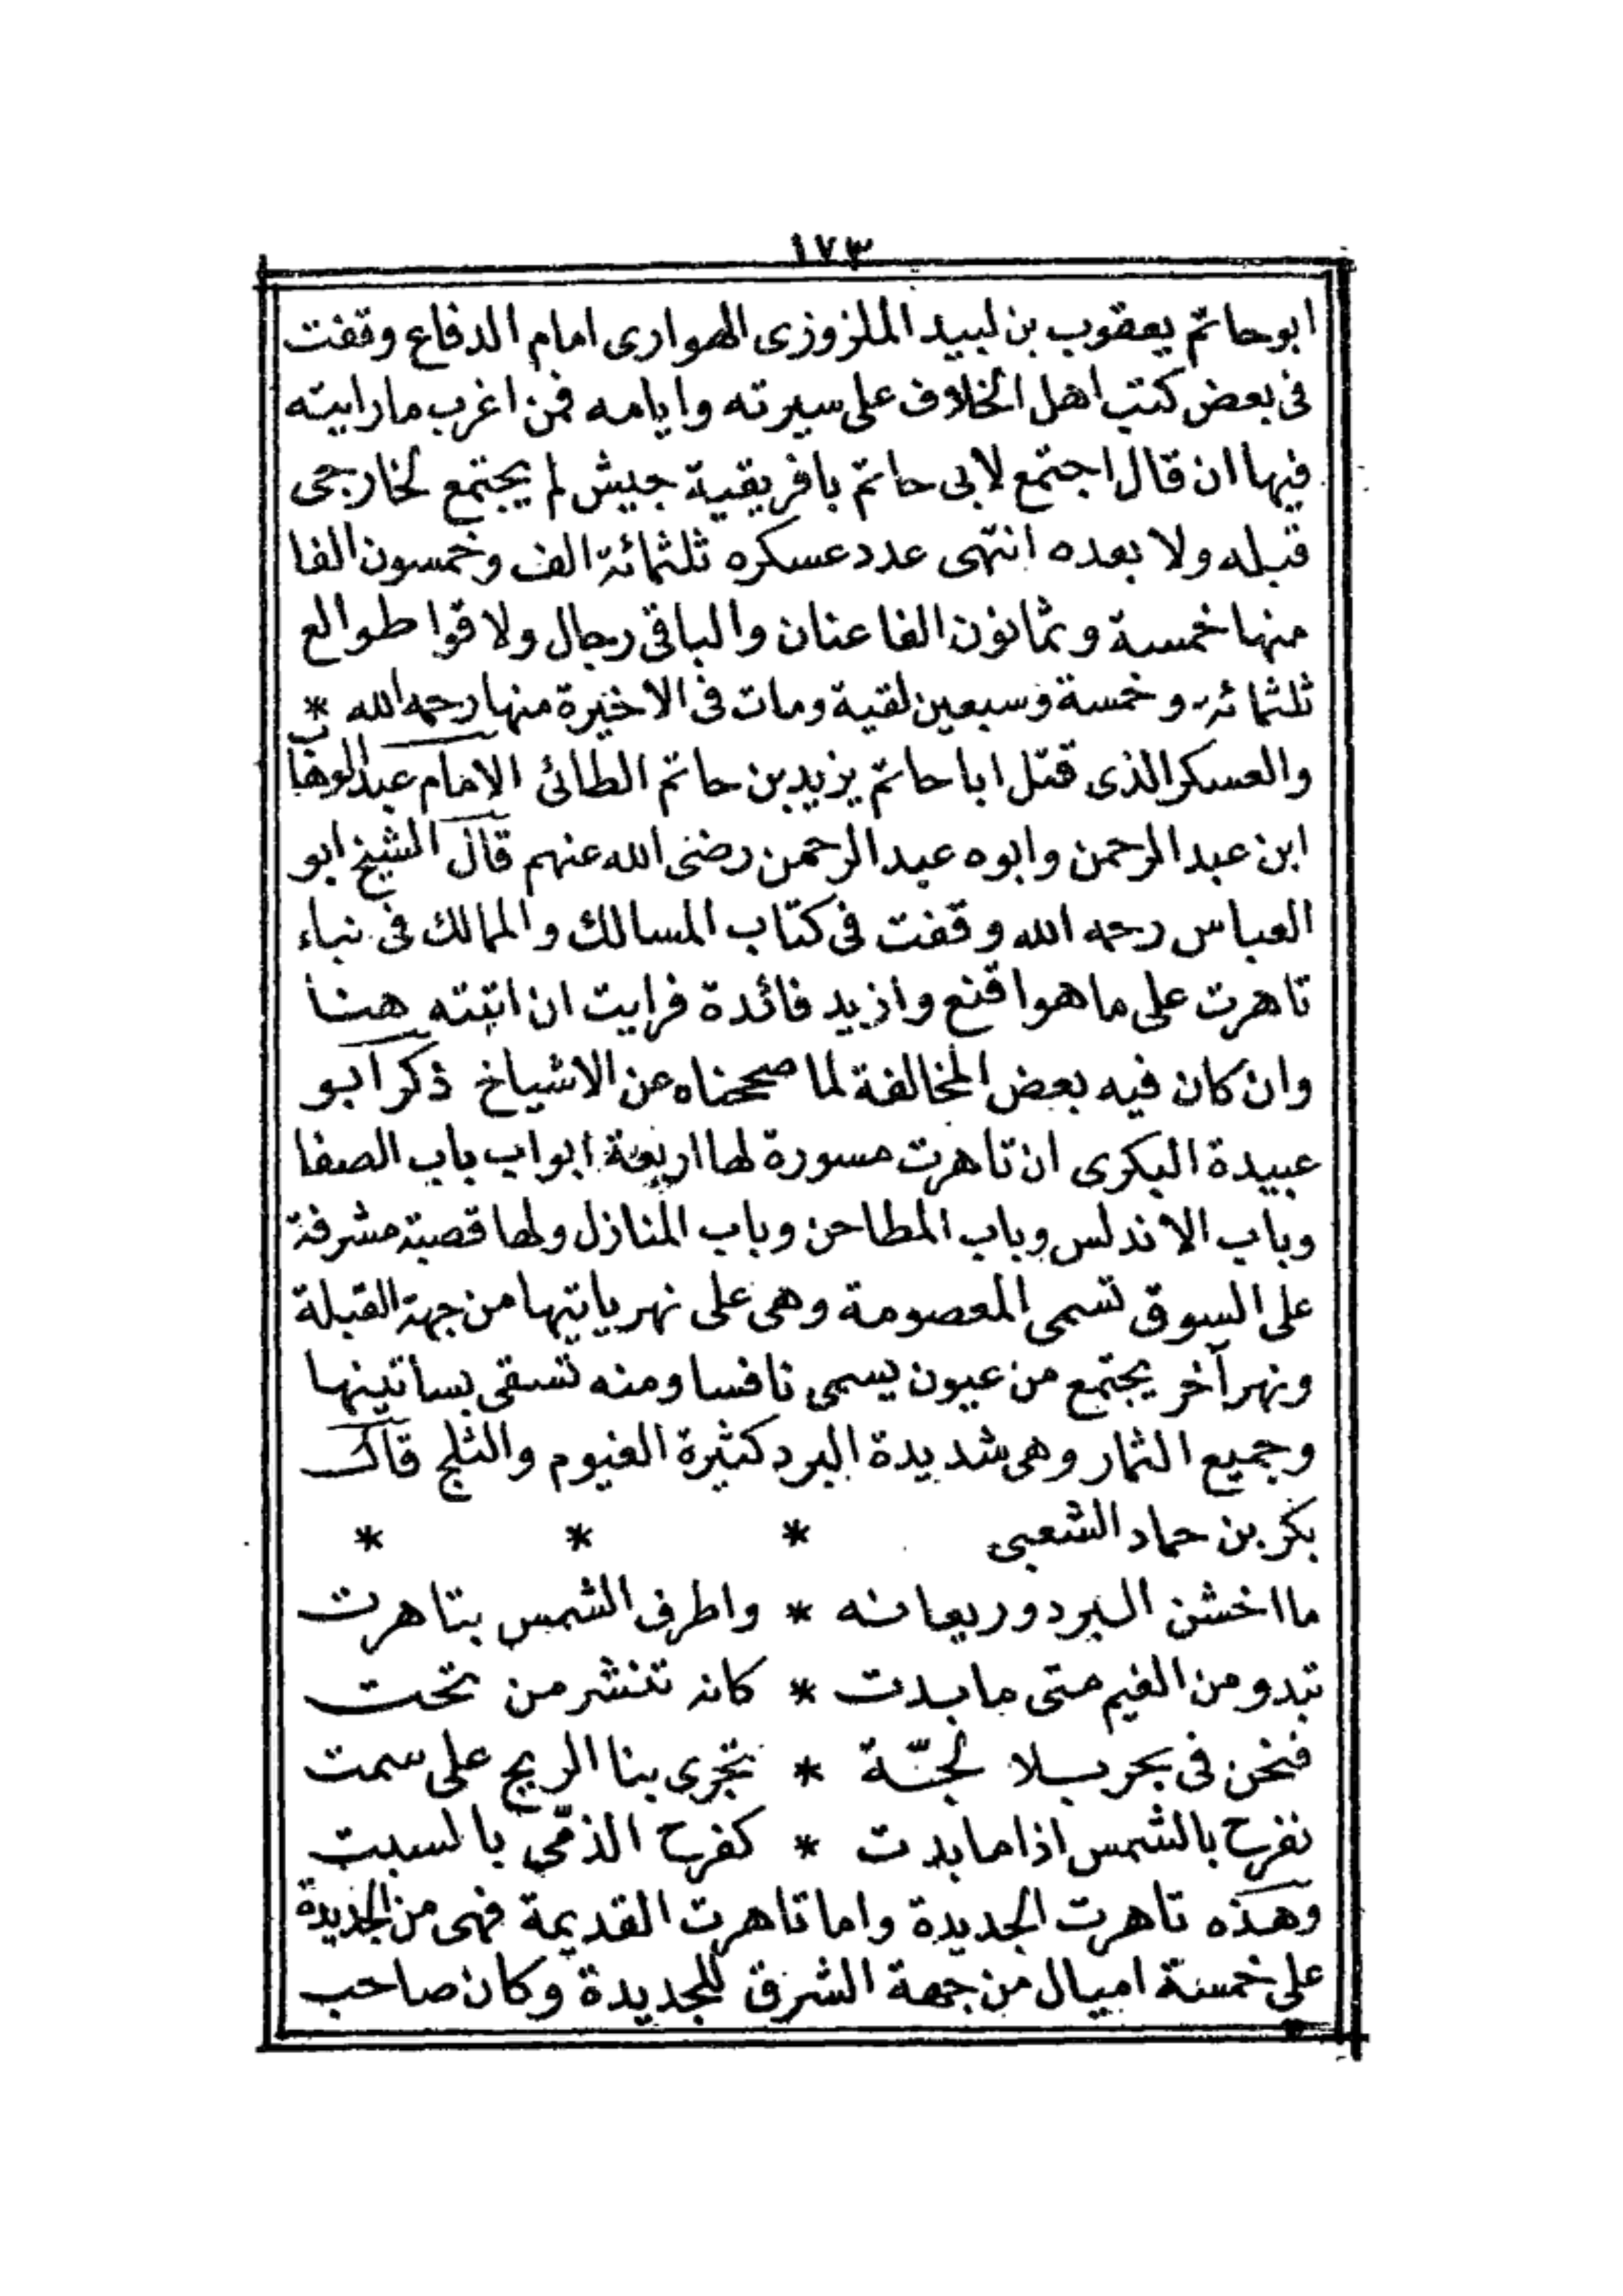 ١٧٣
ابوحاتم يعقوب بن لبيد الملزوزى الهوارى امام الدفاع وقفت
فى بعض كتب اهل الخلاف على سيرته وايامه فمن اغرب مارايته
فيها ان قال اجتمع لابى حاتم بافريقية جيش لم يجتمع لخارجى
قبله ولا بعده انتهى عدد عسكره ثلثمائة الف وخمسون الفا
منها خمسة وثمانون الفا عنان والباقى رجال ولاقوا طوالع
ثلثمائة وخمسة وسبعين لقية ومات فى الاخيرة منها رحمه الله *
والعسكر الذى قتل ابا حاتم يزيد بن حاتم الطائى الامام عبد الوهاب
ابن عبد الرحمن وابوه عبد الرحمن رضى الله عنهم قال الشيخ ابو
العباس رحمه الله وقفت فى كتاب المسالك والممالك فى نباء
تاهرت على ما هو اقنع وازيد فائدة فرايت ان اثبته هنا
وان كان فيه بعض المخالفة لما صححناه عن الاشياخ ذكر ابو
عبيدة البكرى ان تاهرت مسورة لها اربعة ابواب باب الصفا
وباب الاندلس وباب المطاحن وباب المنازل ولها قصبة مشرفة
على السوق تسمى المعصومة وهى على نهر ياتيها من جهة القبلة
ونهر آخر يجتمع من عيون يسمى نافسا ومنه تسقى بساتينها
وجميع الثمار وهى شديدة البرد كثيرة الغيوم والثلج قال
بكر بن حماد الشعبى * * *
ما اخشن البرد وريعانه * واطرف الشمس بتاهرت
تبدو من الغيم متى ما بدت * كانه تنشر من تحت
فنحن فى بحر بلا لجّة * تجرى بنا الريح على سمت
نفرح بالشمس اذا ما بدت * كفرح الذمّى بالسبت
وهذه تاهرت الجديدة واما تاهرت القديمة فهى من الجديدة
على خمسة اميال من جهة الشرق للجديدة وكان صاحب